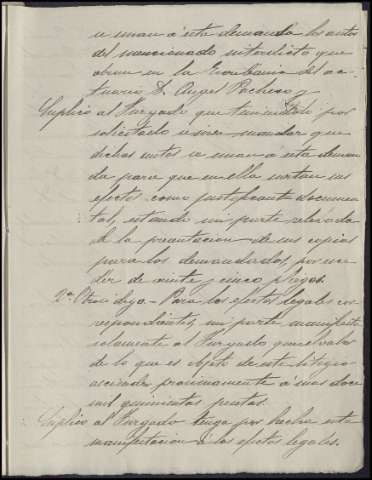 se unan á esta demanda los autos
del mencionado interdicto que
obran en la Escribania del ac-
tuario D. Angel Pacheco y
Suplico al Juzgado que teniendolo por
solicitado se sirva mandar que
dichos autos se unan á esta deman
da para que en ella surtan sus
efectos como justificante documen
tal, estando mi parte relevada
de la presentacion de sus copias
para los demandados, por exce
der de veinte y cinco pliegos.
2º Otrosi digo.- Para los efectos legales cor
respondientes, mi parte manifiesta
solamente al Juzgado que el valor
de lo que es objeto de este litigio
asciende proximamente á unas doce
mil quinientas pesetas.
Suplico al Juzgado tenga por hecha esta
manifestacion á los efectos legales.